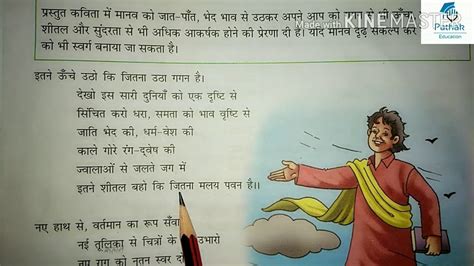 प्रस्तुत कविता में मानव को जात-पाँत, भेद भाव से उठकर अपने आप को
शीतल और सुंदरता से भी अधिक आकर्षक होने की प्रेरणा दी है। यदि मानव दृढ़ संकल्प करे
को भी स्वर्ग बनाया जा सकता है।
Made with KINEMASTER
Pathak
Education
इतने ऊँचे उठो कि जितना उठा गगन है।
देखो इस सारी दुनियाँ को एक दृष्टि से
सिंचित करो धरा, समता को भाव वृष्टि से
जाति भेद की, धर्म-वेश की
काले गोरे रंग-द्वेष की
ज्वालाओं से जलते जग में
इतने शीतल बहो कि जितना मलय पवन है।।
नए हाथ से, वर्तमान का रूप सँवा
नई तूलिका से चित्रों के उभारो
नए राग को नूतन स्वर दो